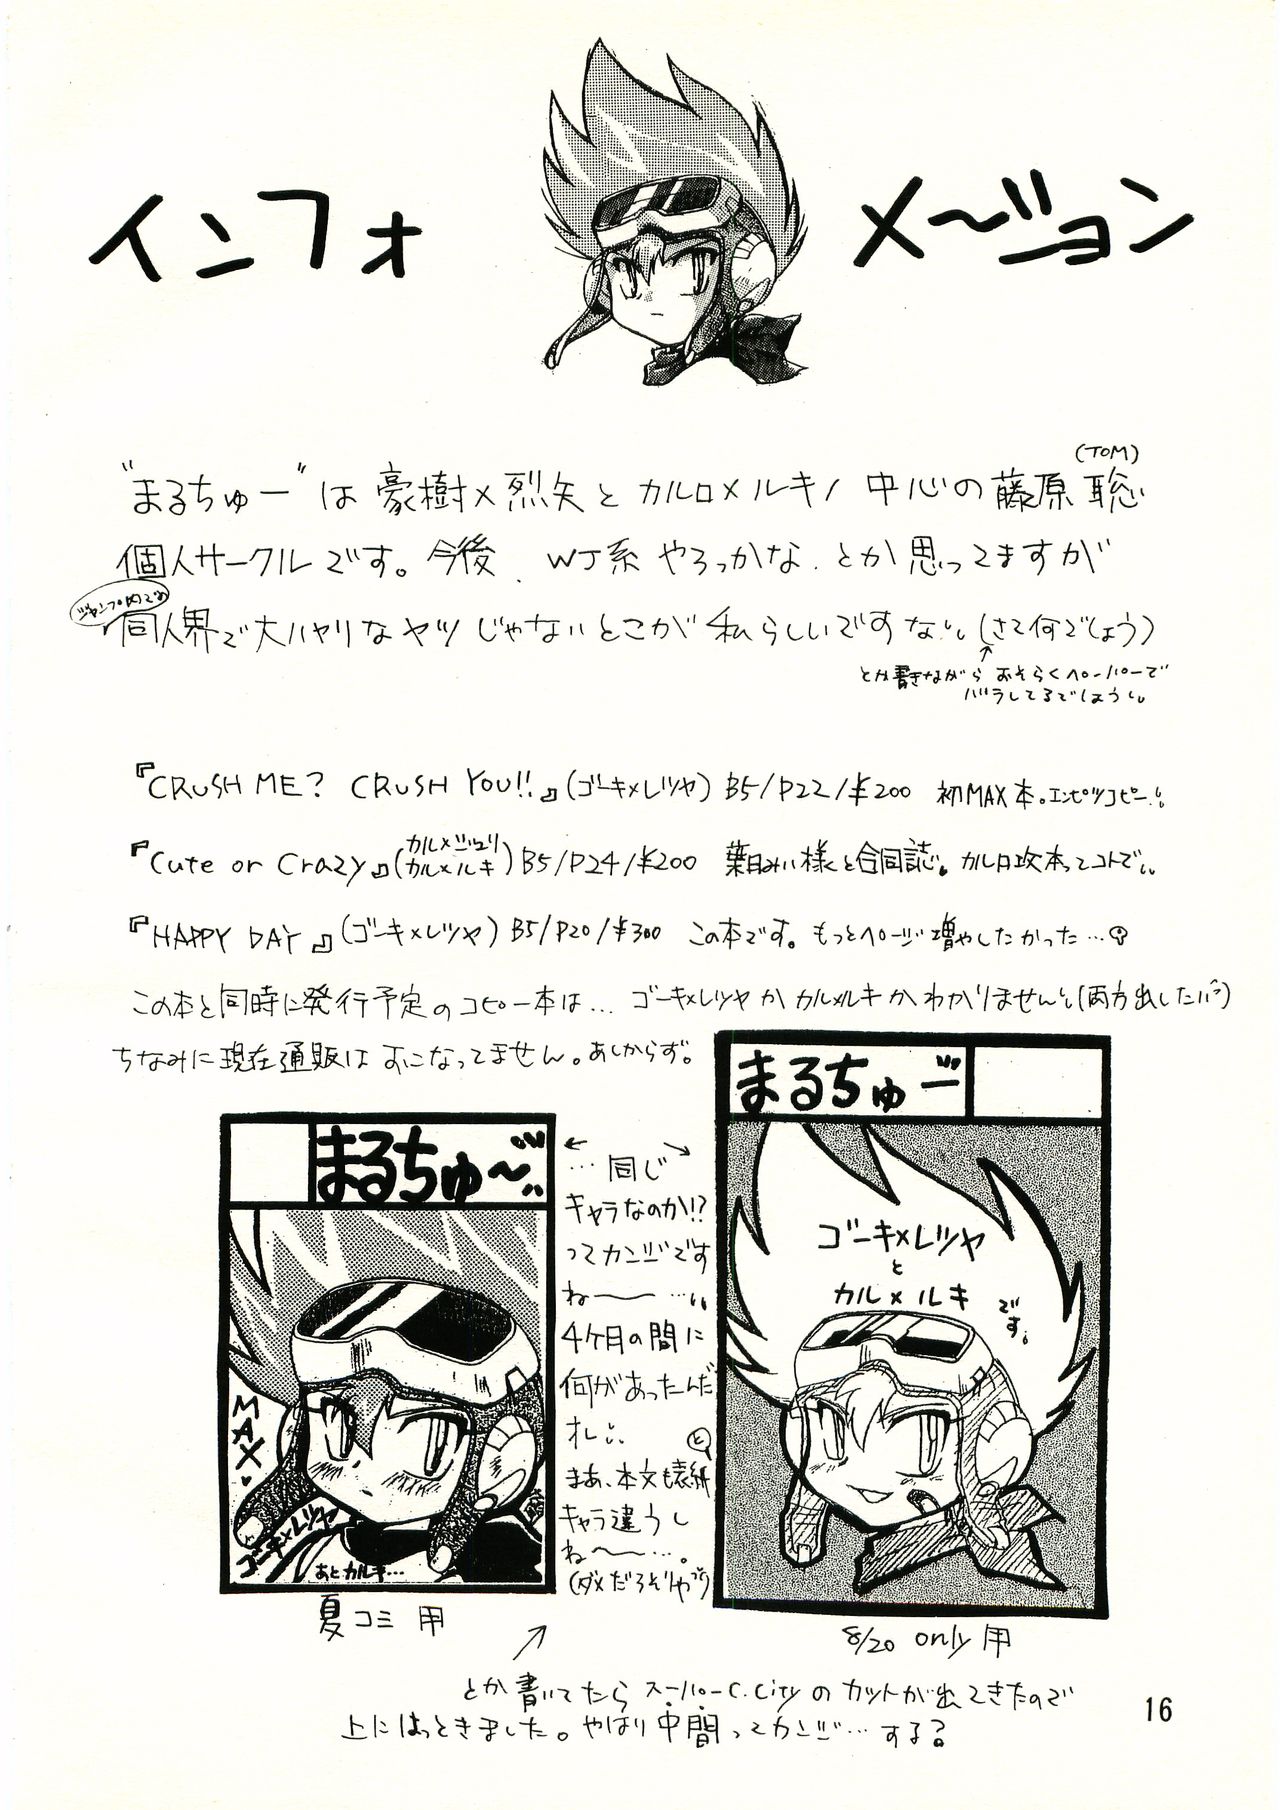 インフォメ〜ション
(TOM)
"まるちゅー"は 豪樹×烈矢と カルロ×ルキノ 中心の 藤原 聡
個人サークルです。今後、WJ系 やろっかな、とか思ってますが
ジャンプ内でも
同人界で大ハヤリなヤツじゃないとこが 私らしいですな (さて何でしょう)
↑
とか書きながら おそらくペーパーで
バラしてるでしょう
『CRUSH ME? CRUSH YOU!!』(ゴーキ×レツヤ) B5/P22/¥200 初MAX本。エンピツコピー
カル×ジュリ
『Cute or Crazy』(カル×ルキ) B5/P24/¥200 葉月みい様と合同誌。カルロ攻本ってコトで
『HAPPY DAY』(ゴーキ×レツヤ) B5/P20/¥300 この本です。もっとページ増やしたかった…
この本と同時に発行予定のコピー本は… ゴーキ×レツヤか カル×ルキか わかりません (両方出したい)
ちなみに現在通販は おこなってません。あしからず。
まるちゅー
まるちゅ〜
← →
…同じ
キャラなのか!?
ってカンジです
ね〜…
4ケ月の間に
何があったんだ
オレ
まあ、本文も表紙
キャラ違うし
ね〜…。
(ダメだろそりゃ)
MAX
ゴーキ×レツヤ
あとカルキ…
ゴーキ×レツヤ
と
カル×ルキ
です。
夏コミ用
8/20 only用
とか書いてたら スーパーC.Cityのカットが出てきたので
上にはっときました。やはり中間ってカンジ…する?
16